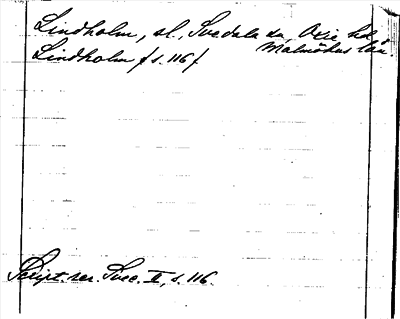 Lindholm, sl., Svedala sn, Oxie hd,
Malmöhus län.
Lindholm /s. 116/
Script. rer. Svec. II, s. 116.